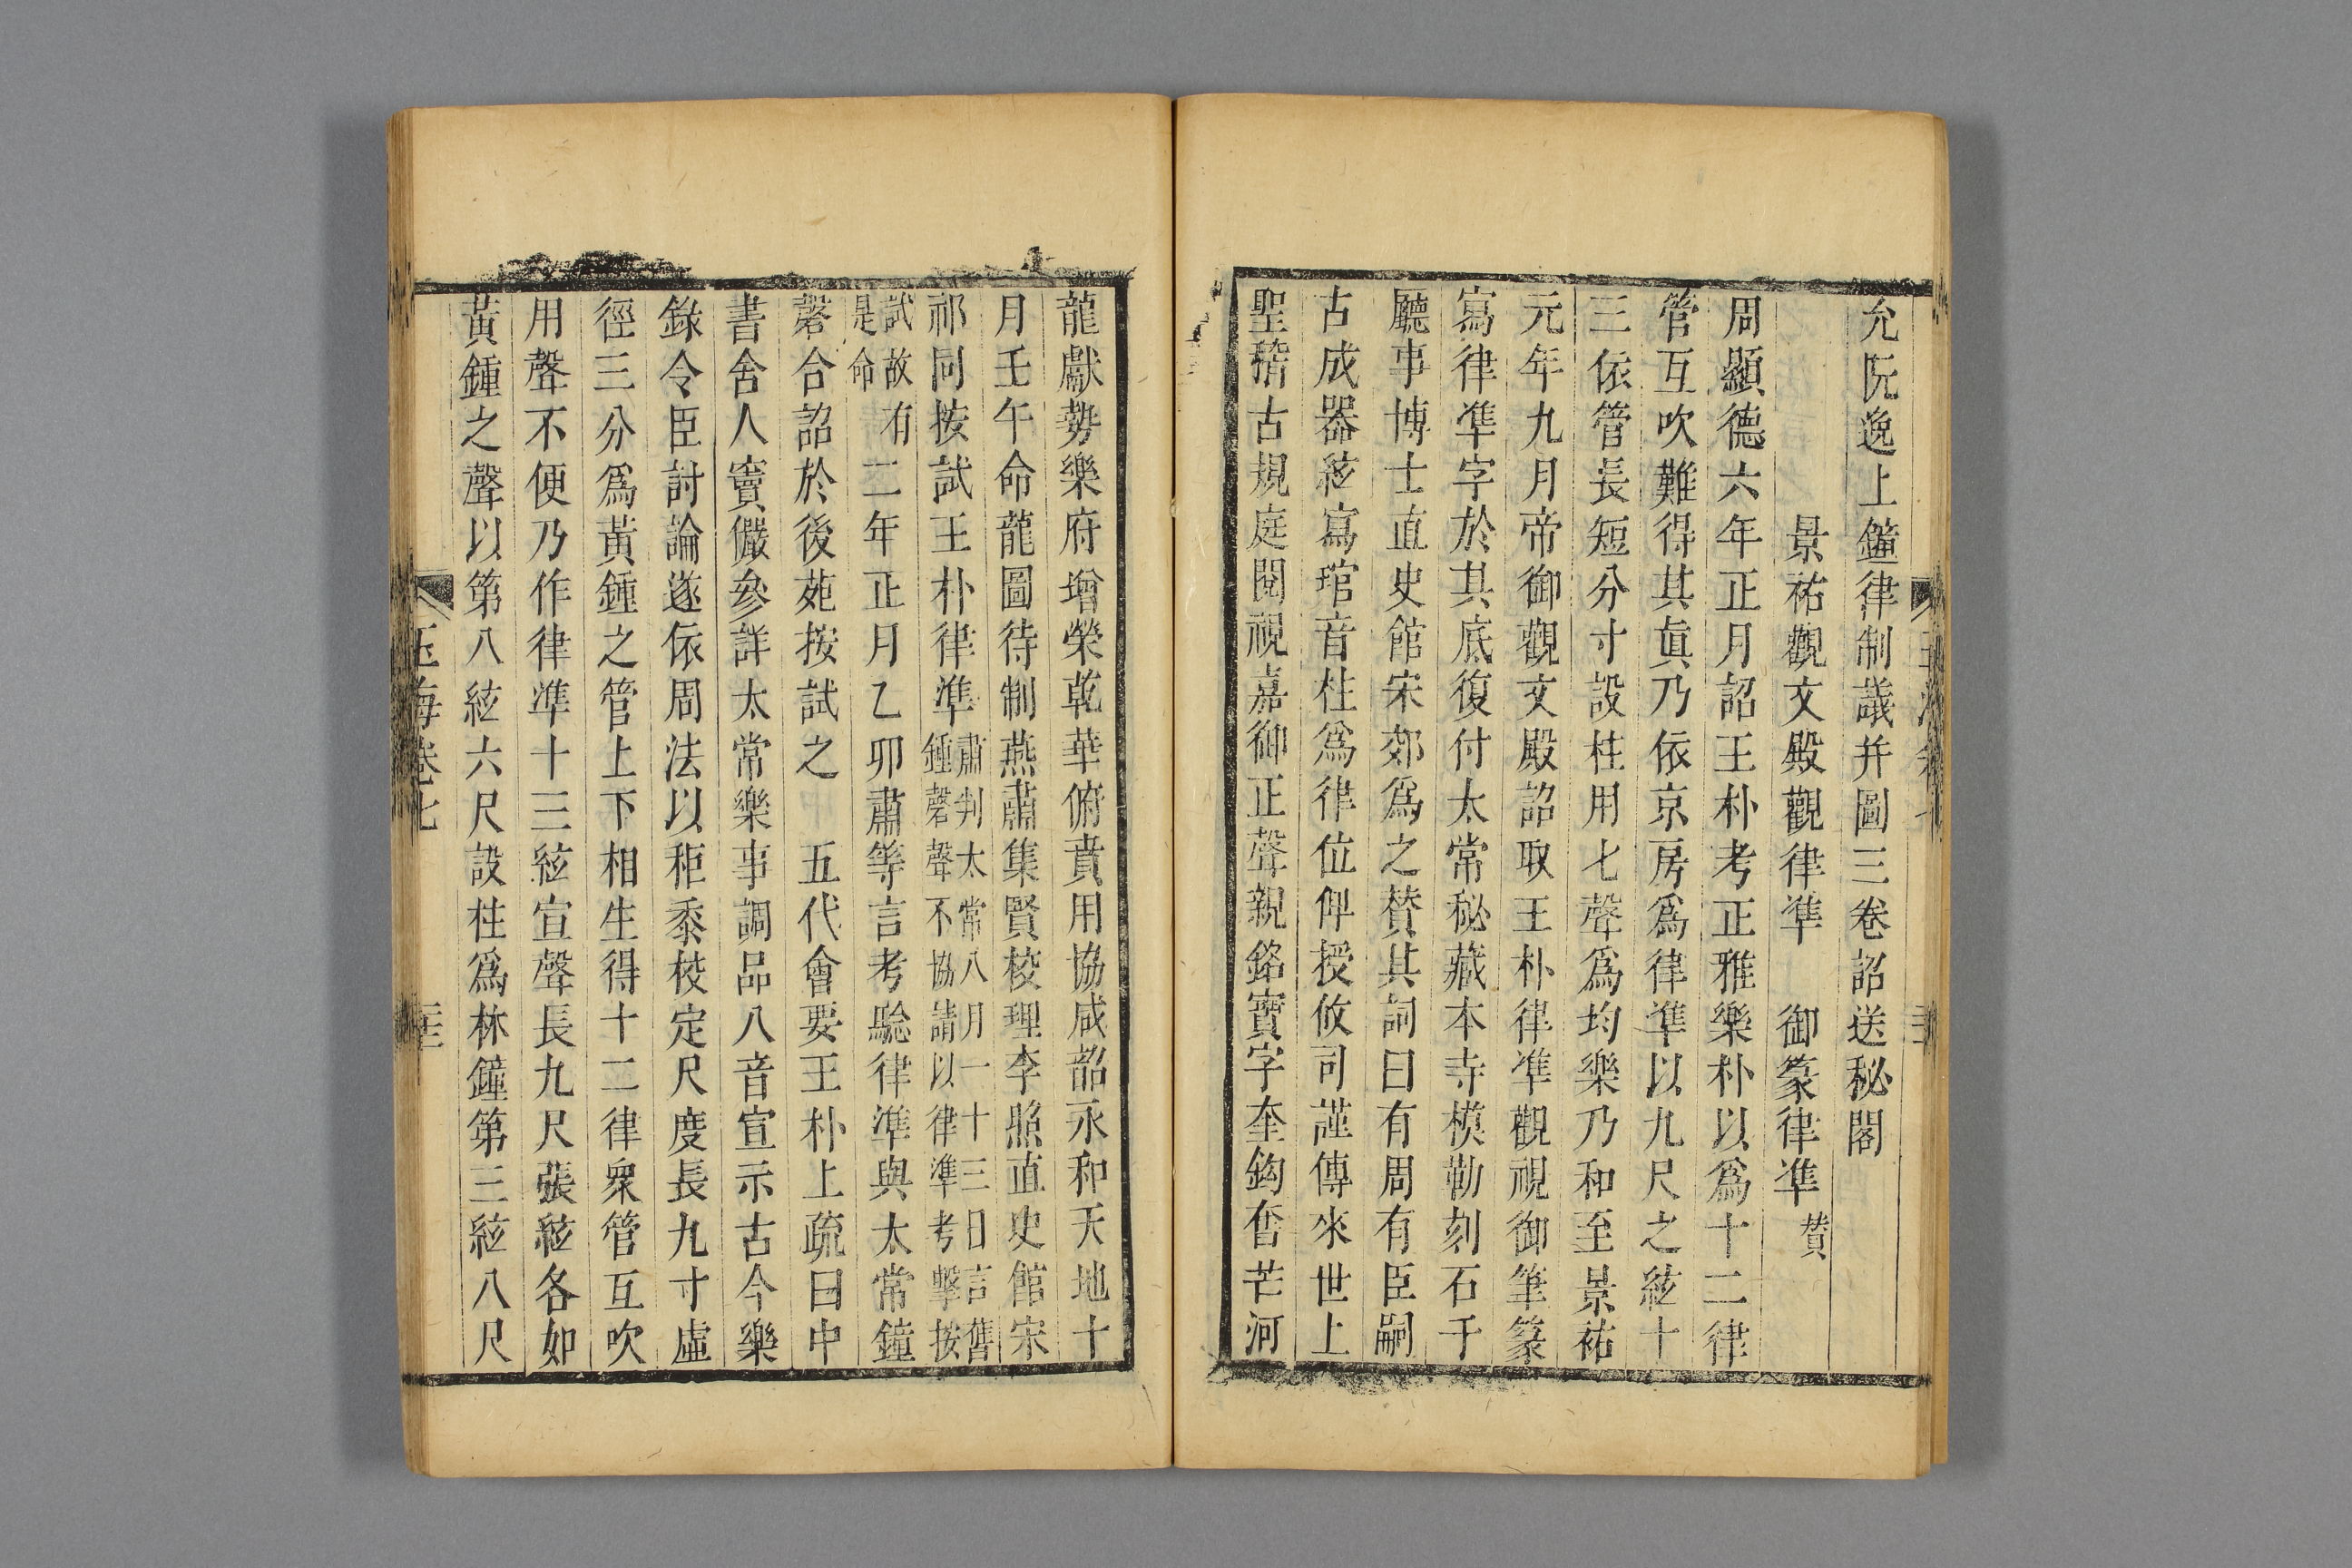 允阮逸上鐘律制議并圖三卷詔送秘閣
景祐觀文殿觀律準　御篆律準贊
周顯德六年正月詔王朴考正雅樂朴以爲十二律
管互吹難得其眞乃依京房爲律準以九尺之絃十
三依管長短分寸設柱用七聲爲均樂乃和至景祐
元年九月帝御觀文殿詔取王朴律準觀視御筆篆
寫律準字於其底復付太常秘藏本寺模勒刻石于
廳事博士直史館宋郊爲之贊其詞曰有周有臣嗣
古成器絃寫琯音柱爲律位俾授攸司謹傳來世上
聖稽古規庭閱視嘉御正聲親銘寶字奎鈎奮芒河
龍獻勢樂府增榮乾華俯賁用協咸韶永和天地十
月壬午命龍圖待制燕肅集賢校理李照直史館宋
祁同按試王朴律準肅判太常八月一十三日言舊鍾磬聲不協請以律準考擊按
試故是命　有二年正月乙卯肅等言考驗律準與太常鐘
磬合詔於後苑按試之　五代會要王朴上疏曰中
書舍人竇儼參詳太常樂事調品八音宣示古今樂
錄令臣討論遂依周法以秬黍校定尺度長九寸虛
徑三分爲黃鍾之管上下相生得十二律衆管互吹
用聲不便乃作律準十三絃宣聲長九尺張絃各如
黃鍾之聲以第八絃六尺設柱爲林鐘第三絃八尺
玉海卷七